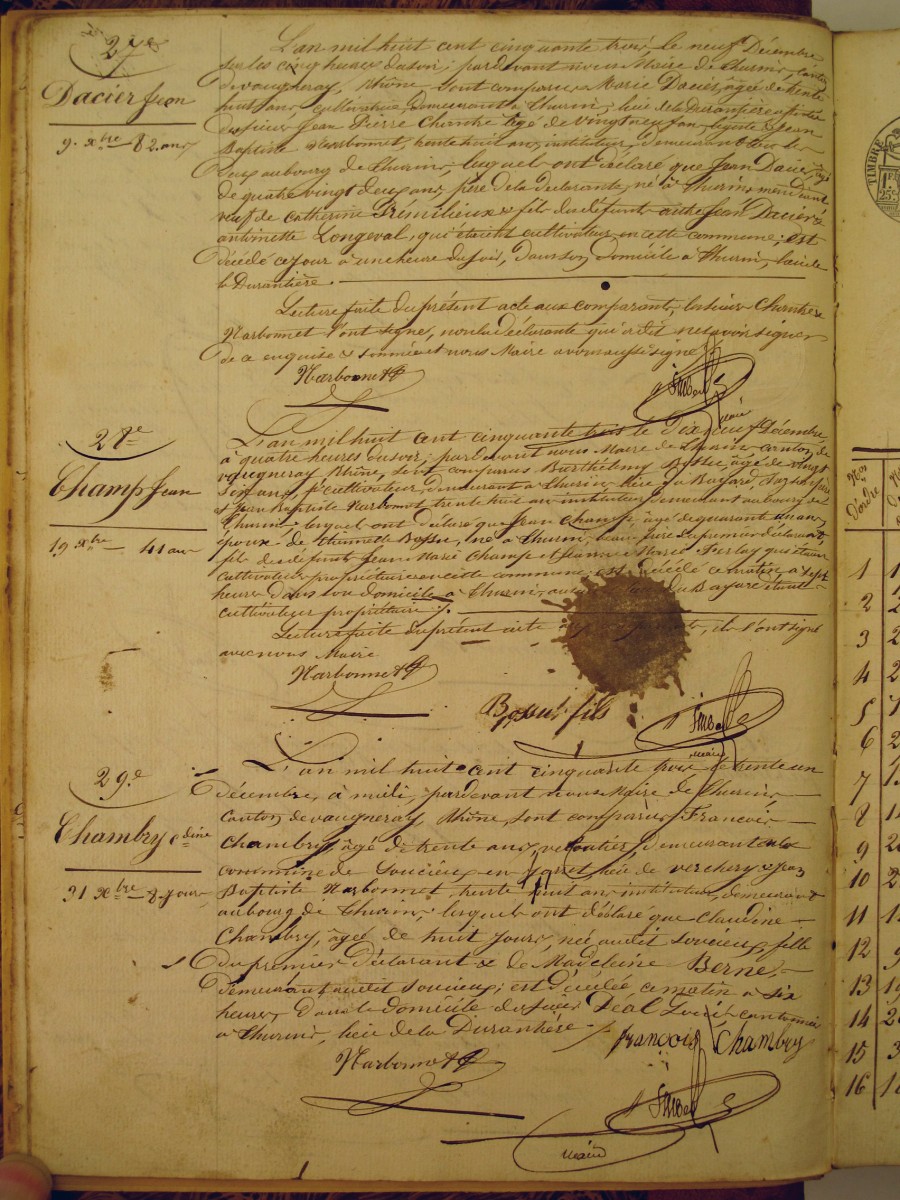 27e
Dacier Jean
9. Xbre 82. ans
L'an mil huit cent cinquante trois, le neuf Décembre,
sur les cinq heures du soir; pardevant nous Maire de Thurins, canton
de vaugneray, Rhône, sont comparus Marie Dacier, âgée de trente
huit ans, cultivatrice demeurant à Thurins, lieu de la Durantière
Jean Pierre Chantre âgé de vingt neuf ans, Jean
Baptiste Narbonnet, trente huit ans, instituteur, demeurant
au bourg de Thurins, lesquels ont déclaré que Jean Dacier, âgé
de quatre vingt deux ans, père de la déclarante, né à Thurins,
veuf de Catherine Frémilieux & fils du défunt autre Jean Dacier &
antoinette Longeval, qui étaient cultivateurs en cette commune; est
décédé ce jour à une heure du soir, dans son domicile à Thurins, lieu de
la Durantière.
Lecture faite du présent acte aux comparants, les sieurs Chantre &
Narbonnet l'ont signé, non la déclarante qui a dit ne savoir signer
de ce enquise & sommée et nous Maire avons aussi signé
Narbonnet
maire
28e
Champ Jean
19 Xbre 41 ans
L'an mil huit cent cinquante trois le dix neuf Décembre
à quatre heures du soir; pardevant nous Maire de Thurins, canton de
vaugneray Rhône, sont comparus Barthélemy Bossu, âgé de vingt
six ans, cultivateur, demeurant à Thurins lieu du Bayard,
& Jean Baptiste Narbonnet trente huit ans instituteur demeurant au bourg de
Thurins, lesquels ont déclaré que Jean Champ, âgé de quarante un ans
époux de Bossu, né à Thurins, beau frère du premier déclarant,
fils des défunts Jean Marie Champ et Jeanne Marie Ferlay qui étaient
cultivateurs propriétaires en cette commune; est décédé ce matin à sept
heures dans son domicile à Thurins, au du Bayard étant
cultivateur propriétaire
Lecture faite du présent acte ils l'ont signé
avec nous Maire
Narbonnet
Bossu fils
maire
29.e
Chambry Cdine
31 Xbre 8 jours
L'an mil huit cent cinquante trois le trente un
décembre, à midi, pardevant nous Maire de Thurins
Canton de vaugneray Rhône, sont comparus François
Chambry, âgé de trente ans, demeurant
commune de Soucieu en Jarret lieu de verchery & Jean
Baptiste Narbonnet, trente huit ans instituteur, demeurant
au bourg de Thurins lesquels ont déclaré que Claudine
Chambry, âgée de huit jours, née audit Soucieu, fille
du premier déclarant & de Madeleine Berne,
demeurant audit Soucieu; est décédée ce matin à six
heures dans le domicile du sieur Déal cantonnier
à Thurins, lieu de la Durantière
françois Chambry
Narbonnet
maire
TIMBRE
25c
Nos
d'ordre
1
2
3
4
5
6
7
8
9
10
11
12
13
14
15
16